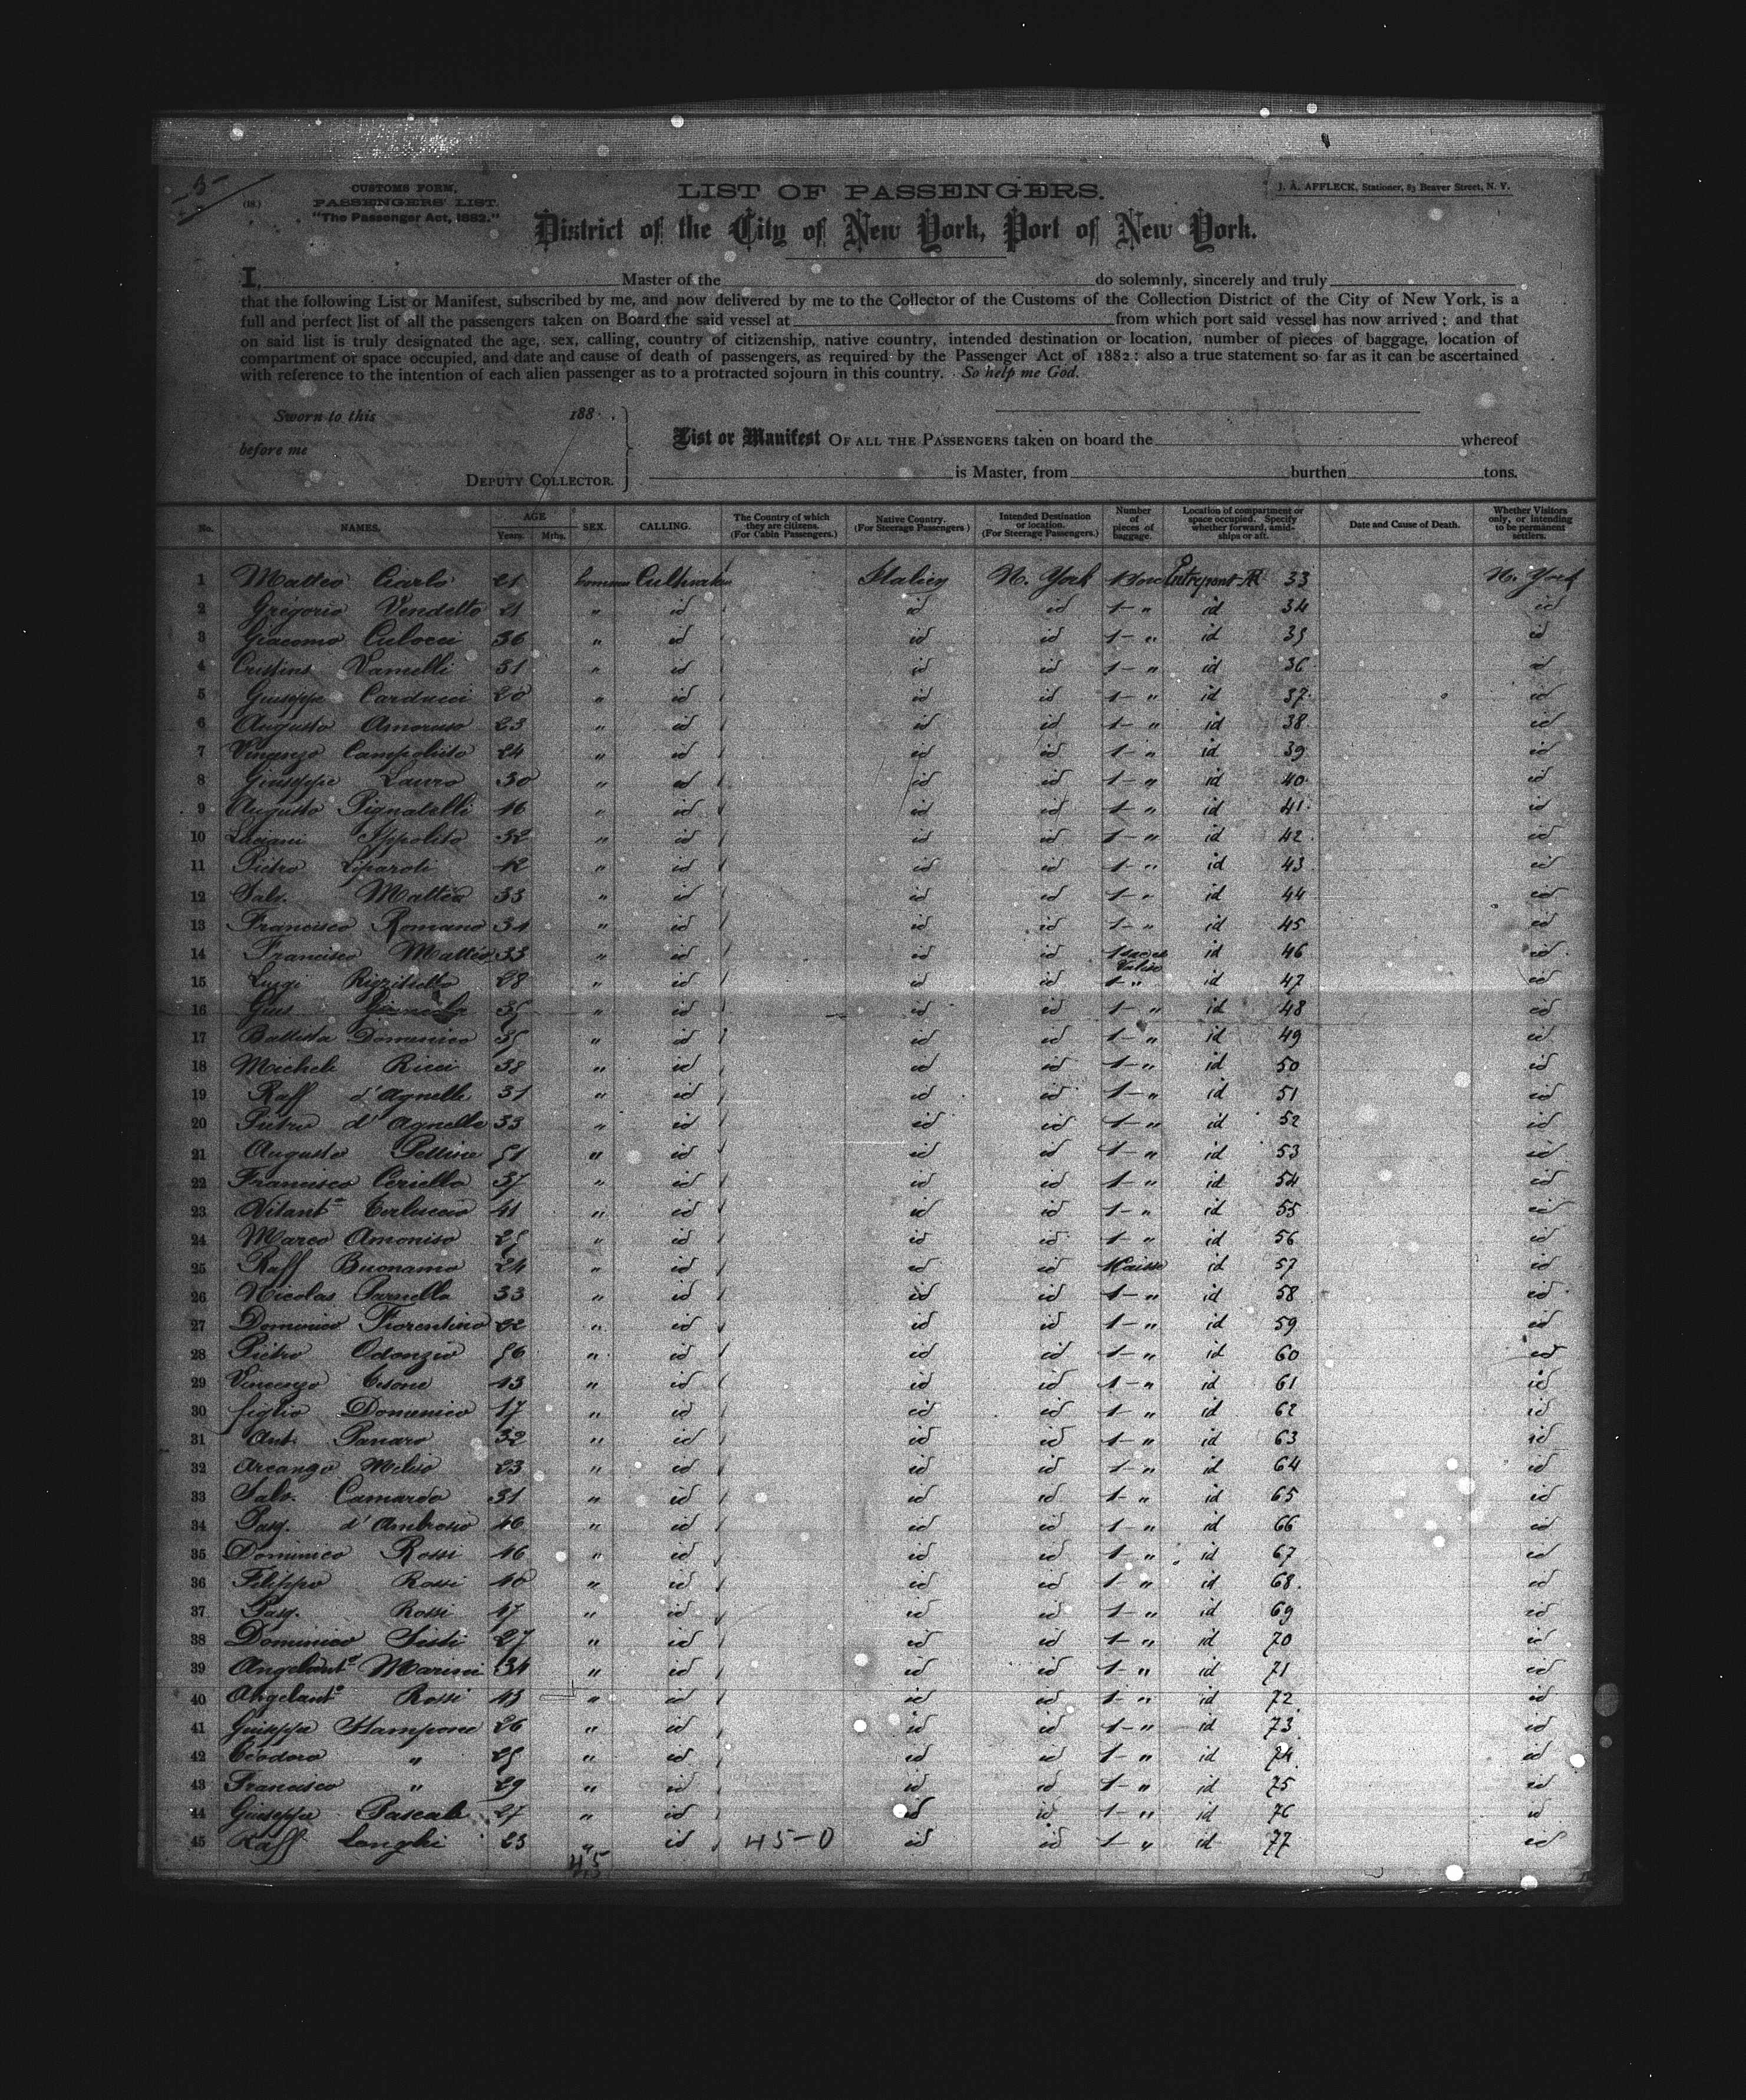 3
CUSTOMS FORM,
PASSENGERS' LIST.
"The Passenger Act, 1882."
LIST OF PASSENGERS.
J. A. AFFLECK, Stationer, 83 Beaver Street, N. Y.
District of the City of New York, Port of New York.
I, Master of the do solemnly, sincerely and truly
that the following List or Manifest, subscribed by me, and now delivered by me to the Collector of the Customs of the Collection District of the City of New York, is a
full and perfect list of all the passengers taken on Board the said vessel at from which port said vessel has now arrived; and that
on said list is truly designated the age, sex, calling, country of citizenship, native country, intended destination or location, number of pieces of baggage, location of
compartment or space occupied, and date and cause of death of passengers, as required by the Passenger Act of 1882; also a true statement so far as it can be ascertained
with reference to the intention of each alien passenger as to a protracted sojourn in this country. So help me God.
Sworn to this 188
before me
DEPUTY COLLECTOR.
List or Manifest OF ALL THE PASSENGERS taken on board the whereof
is Master, from burthen tons.
No. NAMES. AGE Years. Mths. SEX. CALLING. The Country of which they are citizens. (For Cabin Passengers.) Native Country. (For Steerage Passengers.) Intended Destination or location. (For Steerage Passengers.) Number of pieces of baggage. Location of compartment or space occupied. Specify whether forward, amidships or aft. Date and Cause of Death. Whether Visitors only, or intending to be permanent settlers.
1 Matteo Ciarlo 21 homme Italien N. York 1 Entrepont 33 N. York
2 Gregorio Vendetto 21 " id id id 1 - " id 34 id
3 Giacomo 36 " id id id 1 - " id 35 id
4 31 " id id id 1 - " id 36 id
5 Giuseppe Carducci 20 " id id id 1 - " id 37 id
6 Augusto Amoruso 23 " id id id 1 - " id 38 id
7 Vincenzo 24 " id id id 1 - " id 39 id
8 Giuseppe Lauro 30 " id id id 1 - " id 40 id
9 Augusto Pignatelli 16 " id id id 1 - " id 41 id
10 Luciani Ippolito 32 " id id id 1 - " id 42 id
11 Pietro Liparoti 42 " id id id 1 - " id 43 id
12 Salv. Matteo 33 " id id id 1 - " id 44 id
13 Francisco Romano 34 " id id id 1 - " id 45 id
14 Francisco Matteo 33 " id id id 1 id 46 id
15 Luigi 28 " id id id 1 " id 47 id
16 Gius 35 " id id id 1 - " id 48 id
17 Battista Domenico 35 " id id id 1 - " id 49 id
18 Michele Ricci 38 " id id id 1 - " id 50 id
19 Raff d'Agnelle 31 " id id id 1 - " id 51 id
20 Pietro d'Agnelle 33 " id id id 1 - " id 52 id
21 Augusto Pettine 51 " id id id 1 - " id 53 id
22 Francisco Ciriello 37 " id id id 1 - " id 54 id
23 Vitant° 41 " id id id 1 - " id 55 id
24 Marco Amoniso 25 " id id id 1 - " id 56 id
25 Raff Buonamo 24 " id id id 1 Caisse id 57 id
26 Nicolas Parnello 33 " id id id 1 - " id 58 id
27 Domenico Fiorentino 22 " id id id 1 - " id 59 id
28 Pietro Odonzio 56 " id id id 1 - " id 60 id
29 Vincenzo 43 " id id id 1 - " id 61 id
30 figlio Domenico 17 " id id id 1 - " id 62 id
31 Ant. Panaro 32 " id id id 1 - " id 63 id
32 Arcango 23 " id id id 1 - " id 64 id
33 Salv. Camarda 31 " id id id 1 - " id 65 id
34 Pasq. d'Ambrosio 46 " id id id 1 - " id 66 id
35 Dominico Rossi 46 " id id id 1 - " id 67 id
36 Filippo Rossi 40 " id id id 1 - " id 68 id
37 Pasq. Rossi 47 " id id id 1 - " id 69 id
38 Dominico Sisti 27 " id id id 1 - " id 70 id
39 Angelant° Marini 34 " id id id 1 - " id 71 id
40 Angelant° Rossi 43 " id id id 1 - " id 72 id
41 Giuseppe Stampone 26 " id id id 1 - " id 73 id
42 Teodoro " 25 " id id id 1 - " id 74 id
43 Francisco " 29 " id id id 1 - " id 75 id
44 Giuseppe Pascale 27 " id id id 1 - " id 76 id
45 Raff Longhi 23 " id 45-0 id id 1 " id 77 id
45